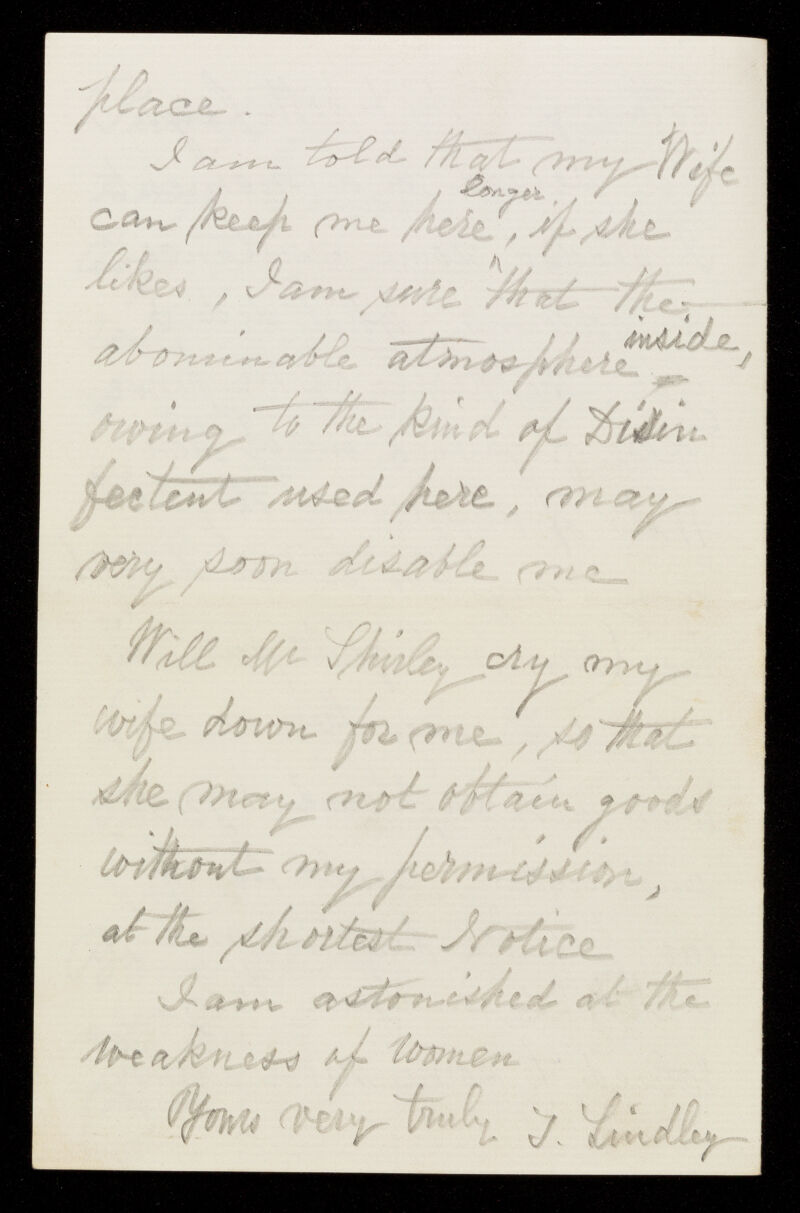 place.
I am told that my Wife
longer
can keep me here, if she
likes, I am sure that the
inside,
abominable atmosphere
owing to the kind of Disin
fectent used here, may
very soon disable me
Will Mr Shirley cry my
wife down for me, so that
she may not obtain goods
without my permission,
at the shortest Notice
I am astonished at the
weakness of women
Yours very truly T. Lindley